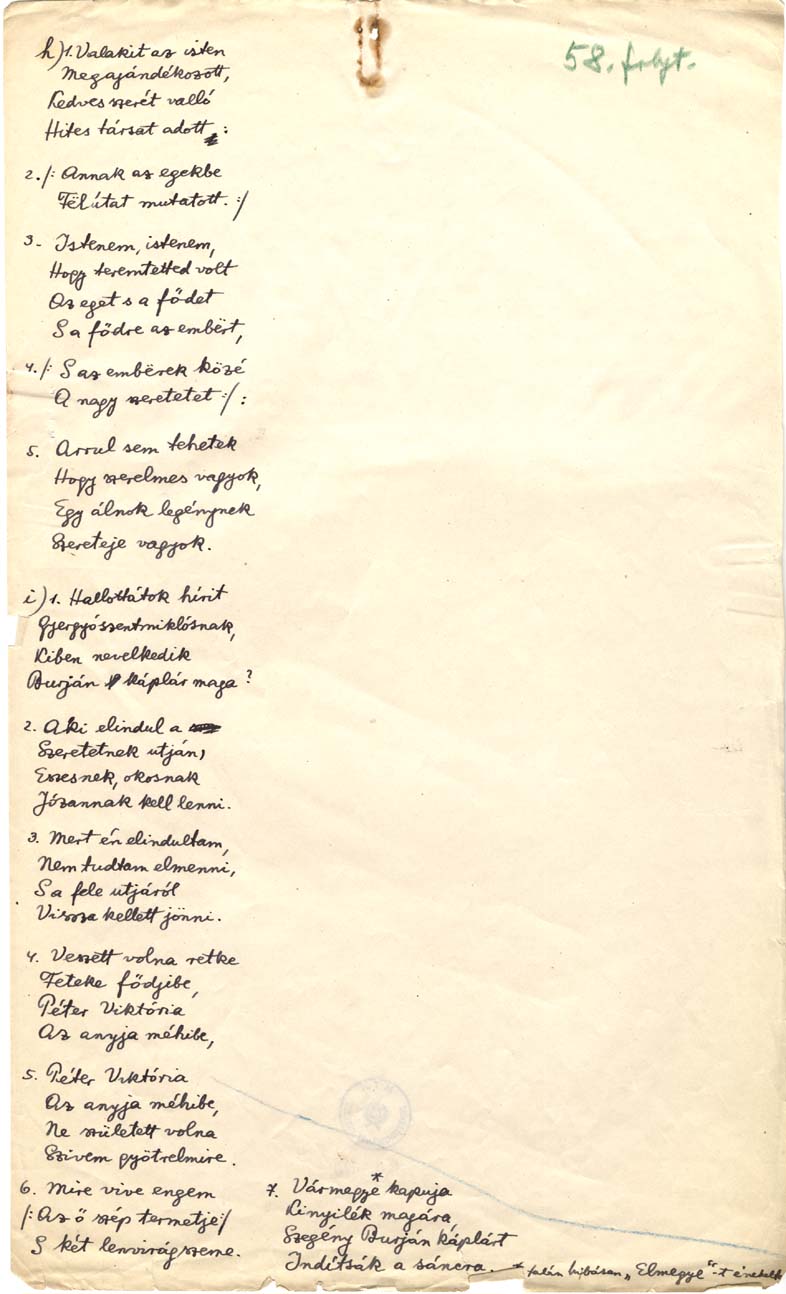 58. folyt.
h) 1. Valakit az isten
Megajándékozott,
Kedves szerét valló
Hites társat adott:
2. /: Annak az egekbe
Fël útat mutatott. :/
3- Istenem, istenem,
Hogy teremtetted volt
Az eget s a fődet
S a fődre az embërt,
4. /: S az embërek közé
A nagy szeretetet :/ :
5. Arrul sem tehetek
Hogy szerelmes vagyok,
Egy álnok legénynek
Szereteje vagyok.
i) 1. Hallottátok hírit
Gyergyószentmiklósnak,
Kiben nevelkedik
Burján káplár maga?
2. Aki elindul a
Szeretetnek utján,
Eszesnek, okosnak
Józannak kell lenni.
3. Mert én elindultam,
Nem tudtam elmenni,
S a fele utjáról
Vissza kellett jönni.
4. Veszett volna retke
Feteke fődjibe,
Péter Viktória
Az anyja méhibe,
5. Péter Viktória
Az anyja méhibe,
Ne született volna
Szivem gyötrelmire.
6. Mire vive engem
/: Az ő szép termetje :/
S két lenvirágszeme.
7. Vármegyé* kapuja
Kinyilék magára,
Szegény Burján káplárt
Indítsák a sáncra.
* talán hibásan „Elmegye"-t énekelt